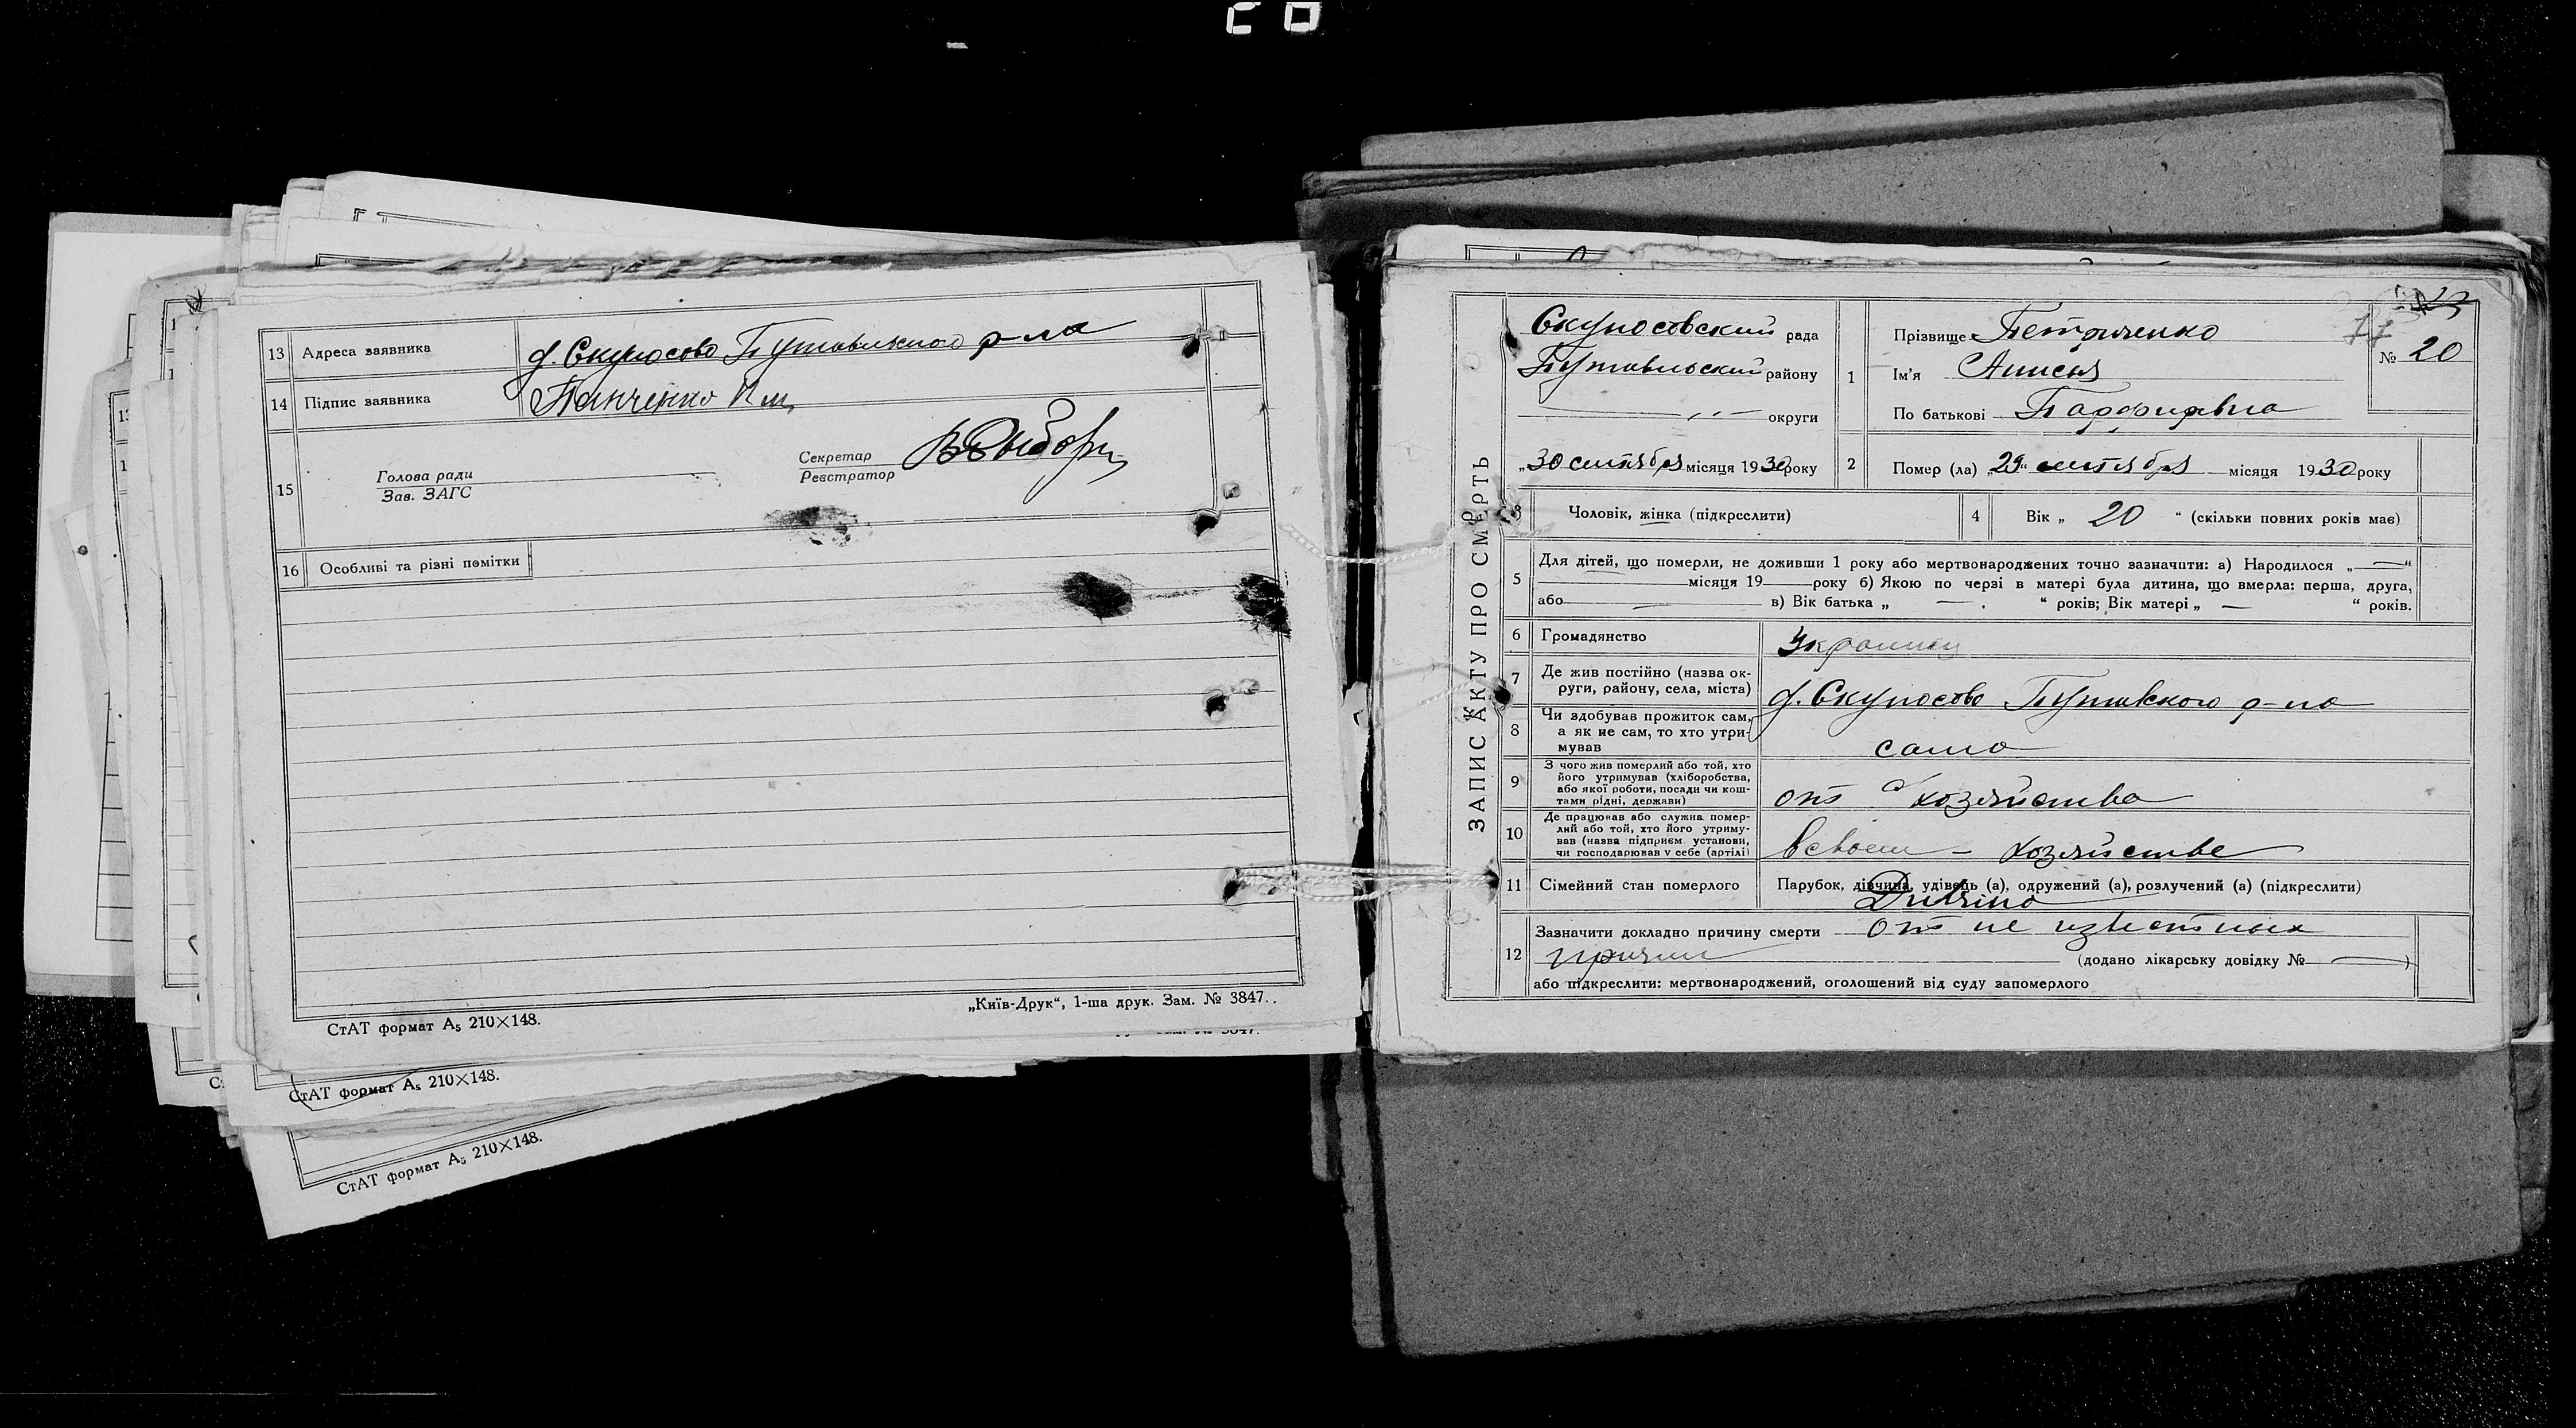 13 Адреса заявника д. Скуносово Путивльского р-на
14 Підпис заявника Панченко
15 Голова ради Секретар
Зав. ЗАГС Реєстратор
16 Особливі та різні помітки
СтАТ формат А₅ 210×148. „Київ-Друк“, 1-ша друк. Зам. № 3847.
СтАТ формат А₅ 210×148.
СтАТ формат А₅ 210×148.
ЗАПИС АКТУ ПРО СМЕРТЬ
Скуносовский рада
Путивльский району
округи
„30 сентября місяця 1930 року
1 Прізвище
Ім’я Анисья
По батькові
№ 20
2 Помер (ла) „29“ сентября місяця 1930 року
3 Чоловік, жінка (підкреслити)
4 Вік „ 20 “ (скільки повних років має)
5 Для дітей, що померли, не доживши 1 року або мертвонароджених точно зазначити: а) Народилося „ — “
місяця 19 — року б) Якою по черзі в матері була дитина, що вмерла: перша, друга,
або — в) Вік батька „ — “ років; Вік матері „ — “ років.
6 Громадянство
7 Де жив постійно (назва ок-
руги, району, села, міста) д. Скуносово Путивского р-на
8 Чи здобував прожиток сам,
а як не сам, то хто утри-
мував сама
9 З чого жив померлий або той, хто
його утримував (хліборобства,
або якої роботи, посади чи кош-
тами рідні, держави) от с хозяйства
10 Де працював або служив помер-
лий або той, хто його утриму-
вав (назва підприєм установи,
чи господарював у себе (артілі) в своем хозяйстве
11 Сімейний стан померлого Парубок, дівчина, удівець (а), одружений (а), розлучений (а) (підкреслити)
Дивчина
12 Зазначити докладно причину смерти от не известных
причин (додано лікарську довідку № — )
або підкреслити: мертвонароджений, оголошений від суду запомерлого